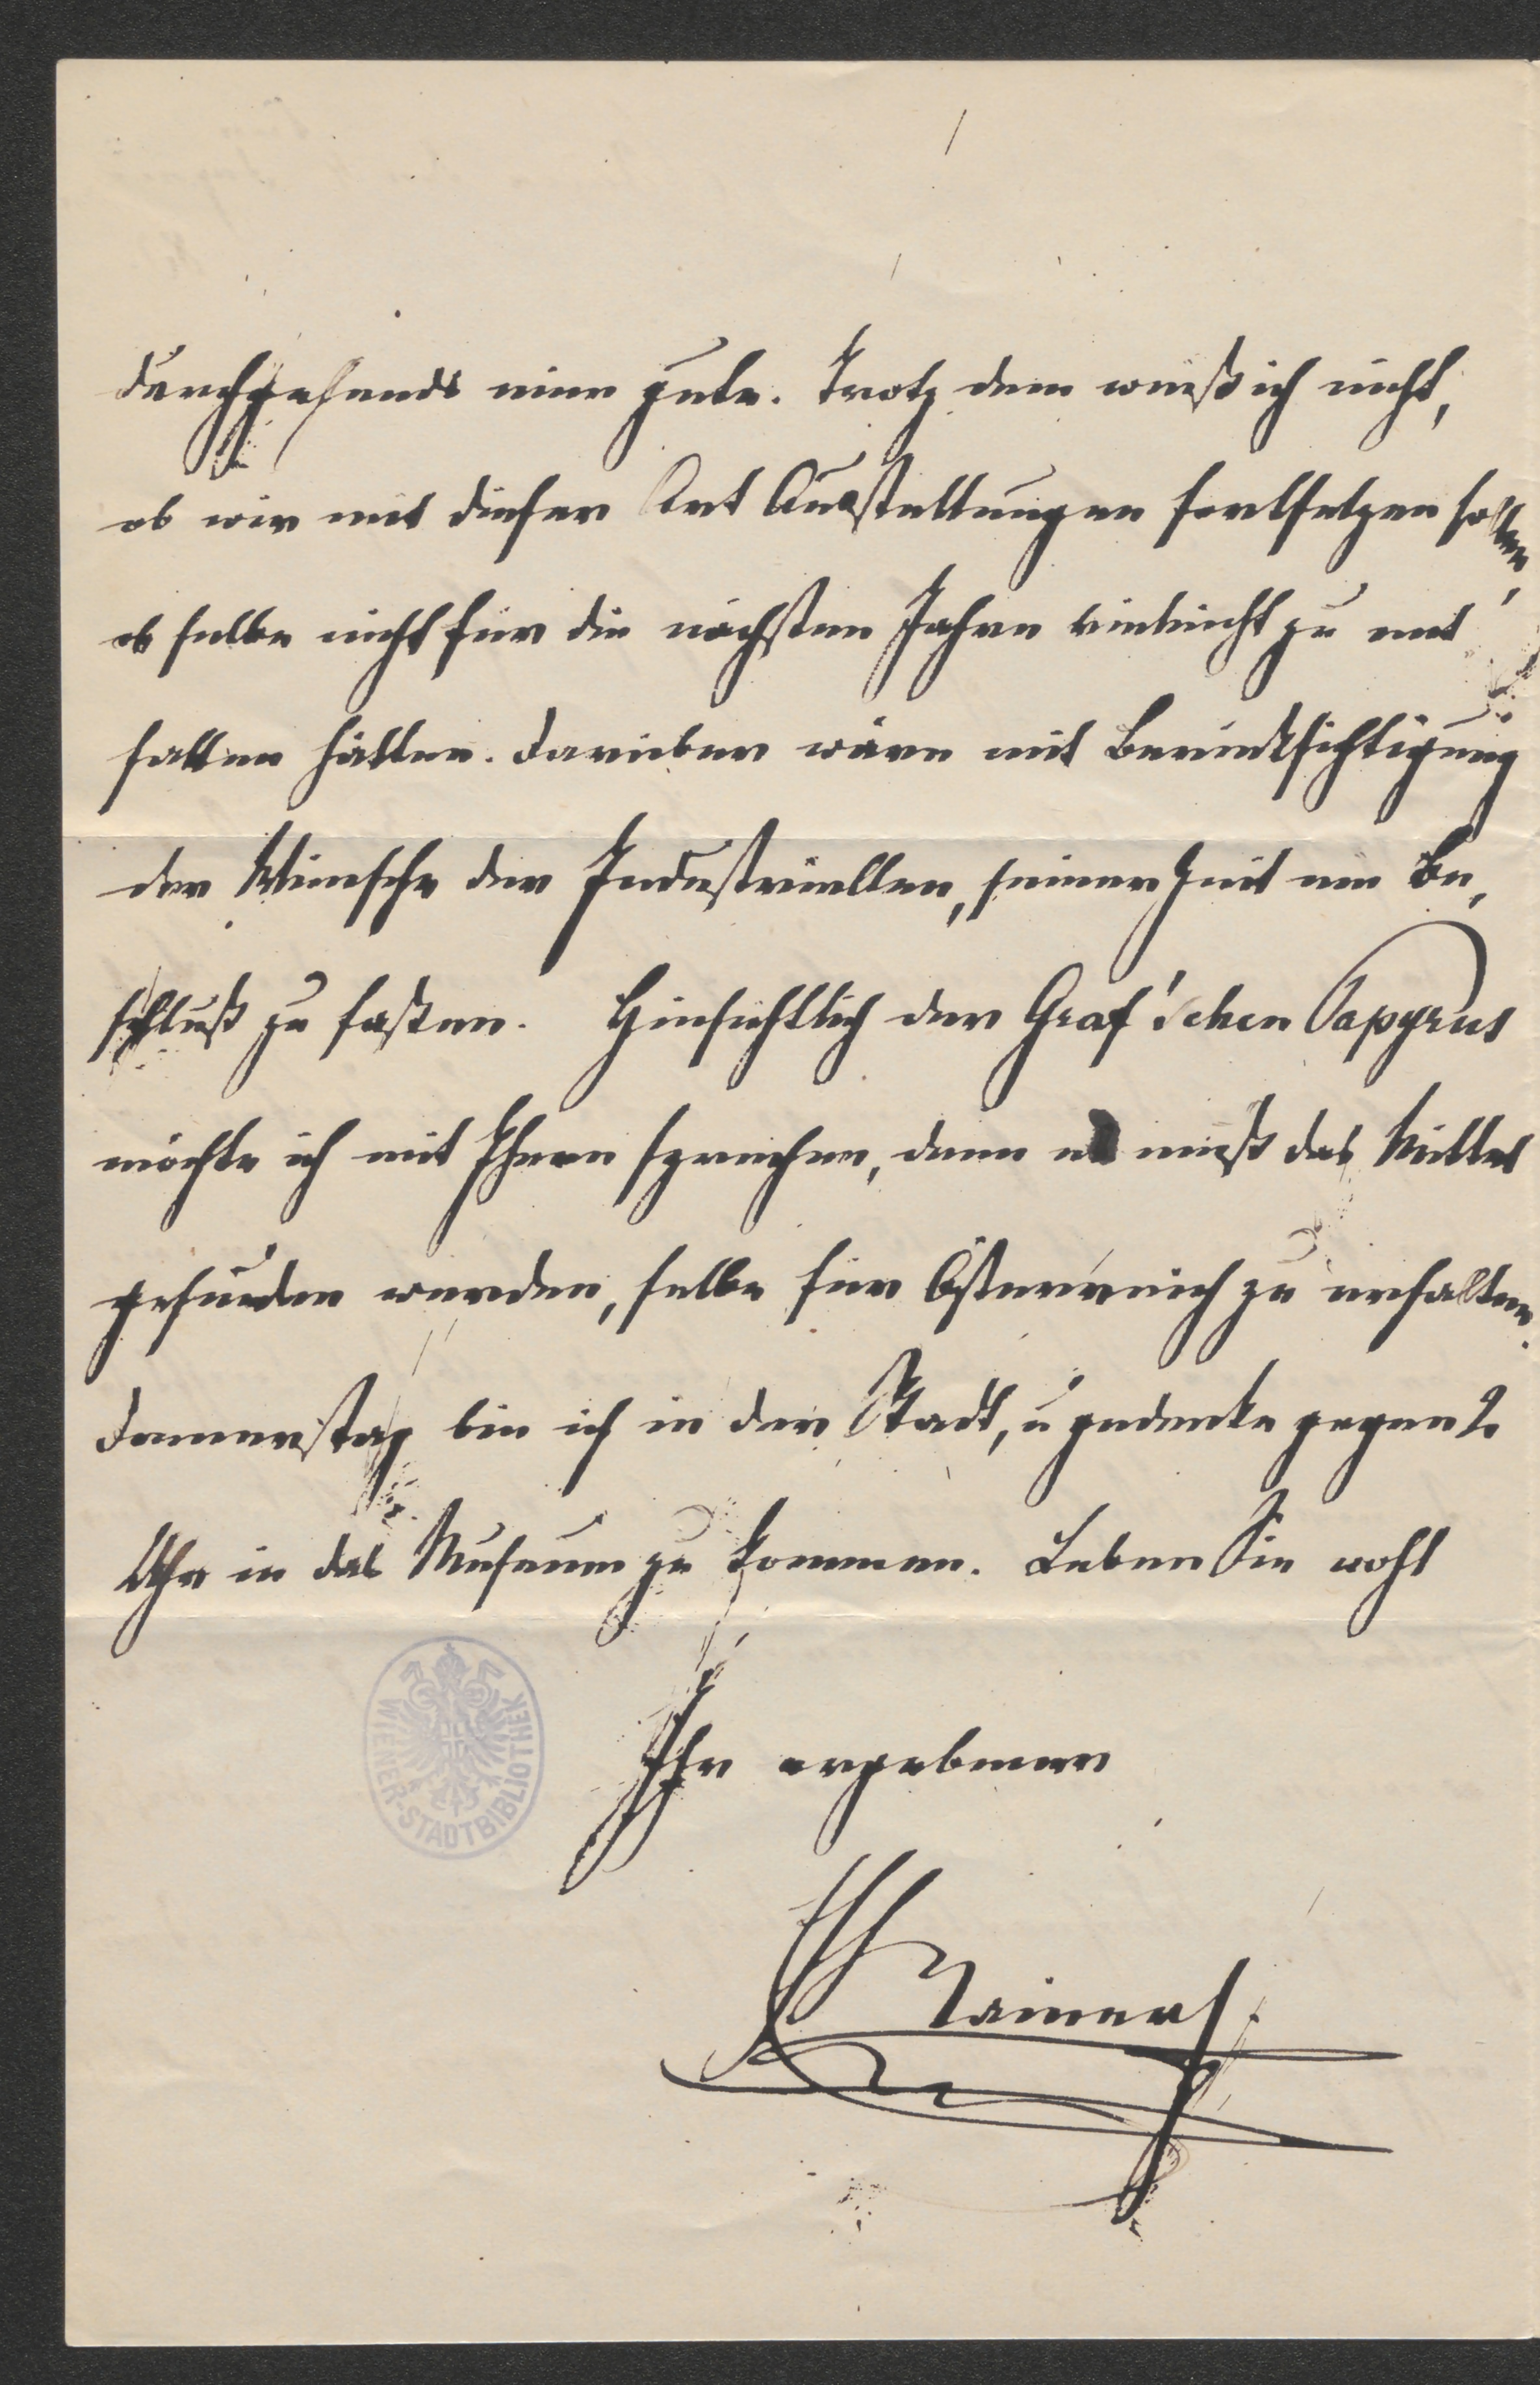 durchgehends eine gute. Trotz dem weiß ich nicht,
ob wir mit dieser Art Ausstellungen fortsetzen sollen,
ob selbe nicht für die nächsten Jahre vieleicht zu ent
fallen hätten. Darüber wäre mit Berücksichtigung
der Wünsche der Industriellen, seiner Zeit ein Be,
schluß zu faßen. Hinsichtlich der Graf'schen Papyrus
möchte ich mit Ihnen sprechen, denn es muß das Mittel
gefunden werden, selbe für Österreich zu erhalten.
Donnerstag bin ich in der Stadt, u gedenke gegen 2
Uhr in das Museum zu kommen. Leben Sie wohl
Ihr ergebener
EH Rainer
WIENER-STADTBIBLIOTHEK